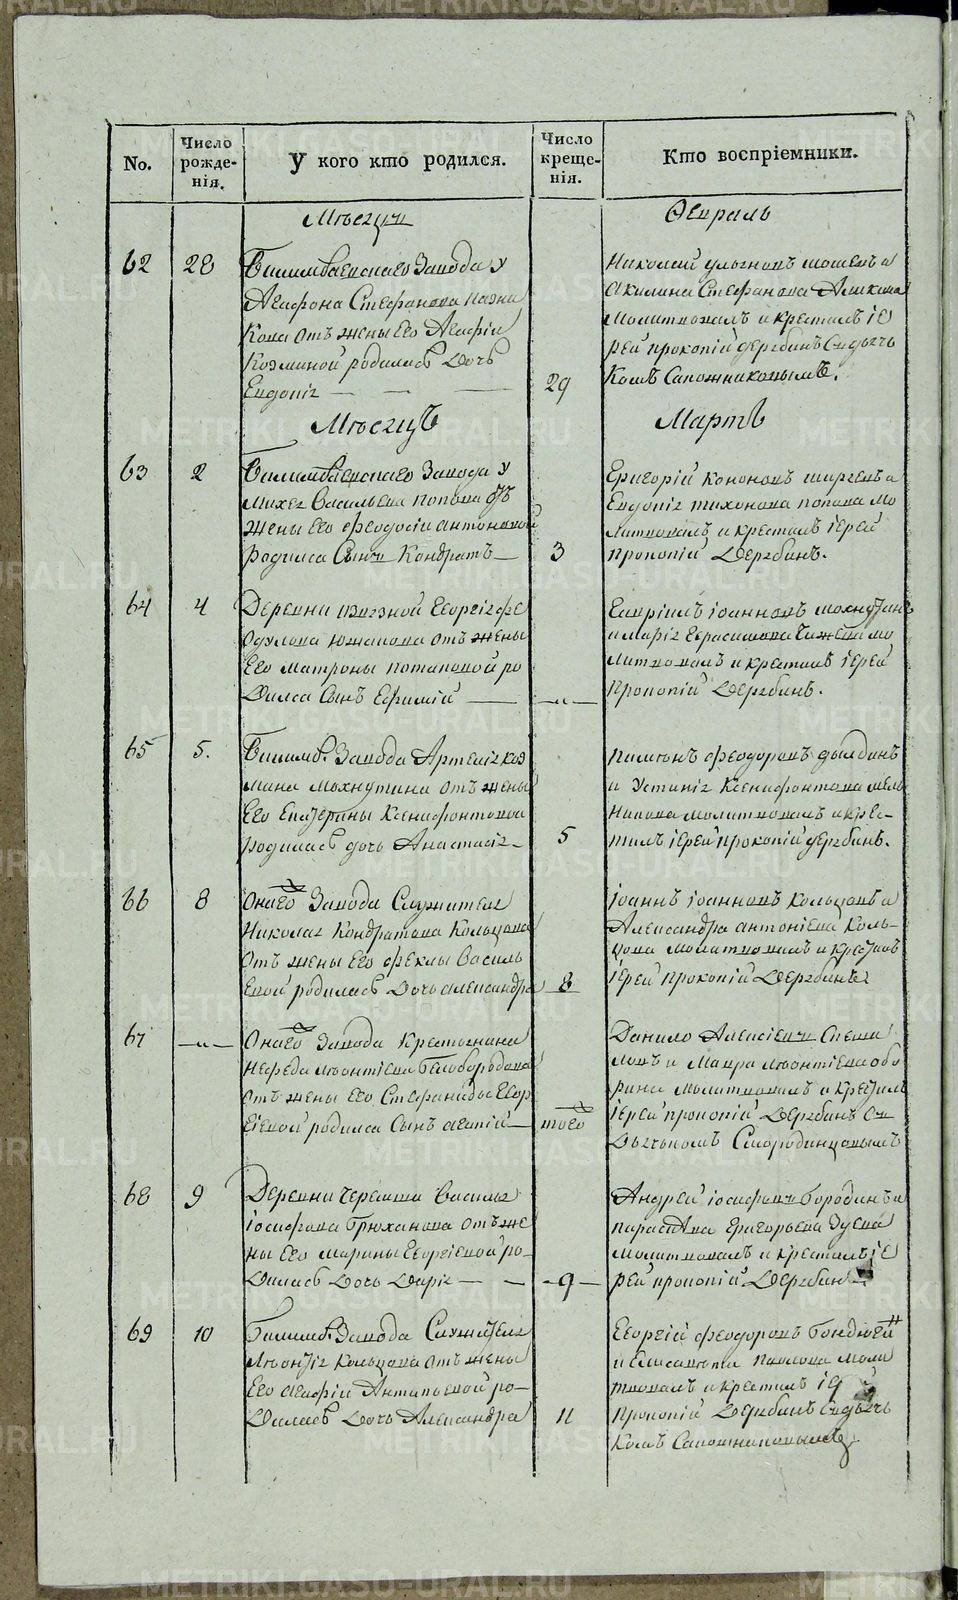 No.
Число рожде-нія.
У кого кто родился.
Число креще-нія.
Кто воспріемники.
Мѣсяцъ
Февраль
62
28
Билимбаевскаго Завода у
Агафона Стефанова
кова отъ жены его Агафіи
Козминой родилась дочь
Евдокія
29
Николай
Акилина Стефанова
молитвовалъ и крестилъ іе
рей Прокопій Дерябинъ съ дьяч
комъ Сапожниковымъ.
Мѣсяцъ
Мартъ
63
2
Билимбаевскаго Завода у
Михея Васильева Попова отъ
жены его Феодосіи Антоновой
родился сынъ Кондратъ
3
Григорій Кононовъ Ширяевъ и
Евдокія Тихонова Попова мо
литвовалъ и крестилъ іерей
Прокопій Дерябинъ.
64
4
Деревни Георгія Фе
одулова Южакова отъ жены
его Матроны Потаповой ро
дился сынъ Ефимій
-„-
Гавріилъ Іоанновъ Махнутинъ
и Марія Герасимова мо
литвовалъ и крестилъ іерей
Прокопій Дерябинъ.
65
5.
Билимб. Завода Артемія Коз
мина Махнутина отъ жены
его Екатерины Ксенофонтовой
родилась дочь Анастасія
5
Пимонъ Феодоровъ Дылдинъ
и Устинія Ксенифонтова Мель
никова молитвовалъ и крес-
тилъ іерей Прокопій Дерябинъ.
66
8
Онаго Завода Служителя
Николая Кондратова Кольцова
отъ жены его Феклы Василь
евой родилась дочь Александра
8
Іоаннъ Іоанновъ Кольцовъ и
Александра Антоніева Коль-
цова молитвовалъ и крестилъ
іерей Прокопій Дерябинъ
67
-„-
Онаго Завода Крестьянина
Нефеда Леонтіева Белобородова
отъ жены его Стефаниды Геор
гіевой родился сынъ Агапій
того
Данило Алексіевъ
ловъ и Мавра Леонтіева Обо
рина молитвовалъ и крестилъ
іерей Прокопій Дерябинъ съ
дьячкомъ Смородинцовымъ
68
9
Деревни Черемши Василья
Іосифова Брюханова отъ же
ны его Марины Георгіевой ро-
дилась дочь Дарія
-9-
Андрей Іосифовъ Бородинъ и
Параскева Григорьева Зуева
молитвовалъ и крестилъ іе
рей Прокопій Дерябинъ
69
10
Билимб. Завода Служителя
Леонтія Кольцова отъ жены
его Агафіи Антипьевой ро-
дилась дочь Александра
11
Георгій Феодоровъ
и Елисавета Павлова моли
твовалъ и крестилъ іе
Прокопій Дерябинъ съ дьяч
комъ Сапожниковымъ